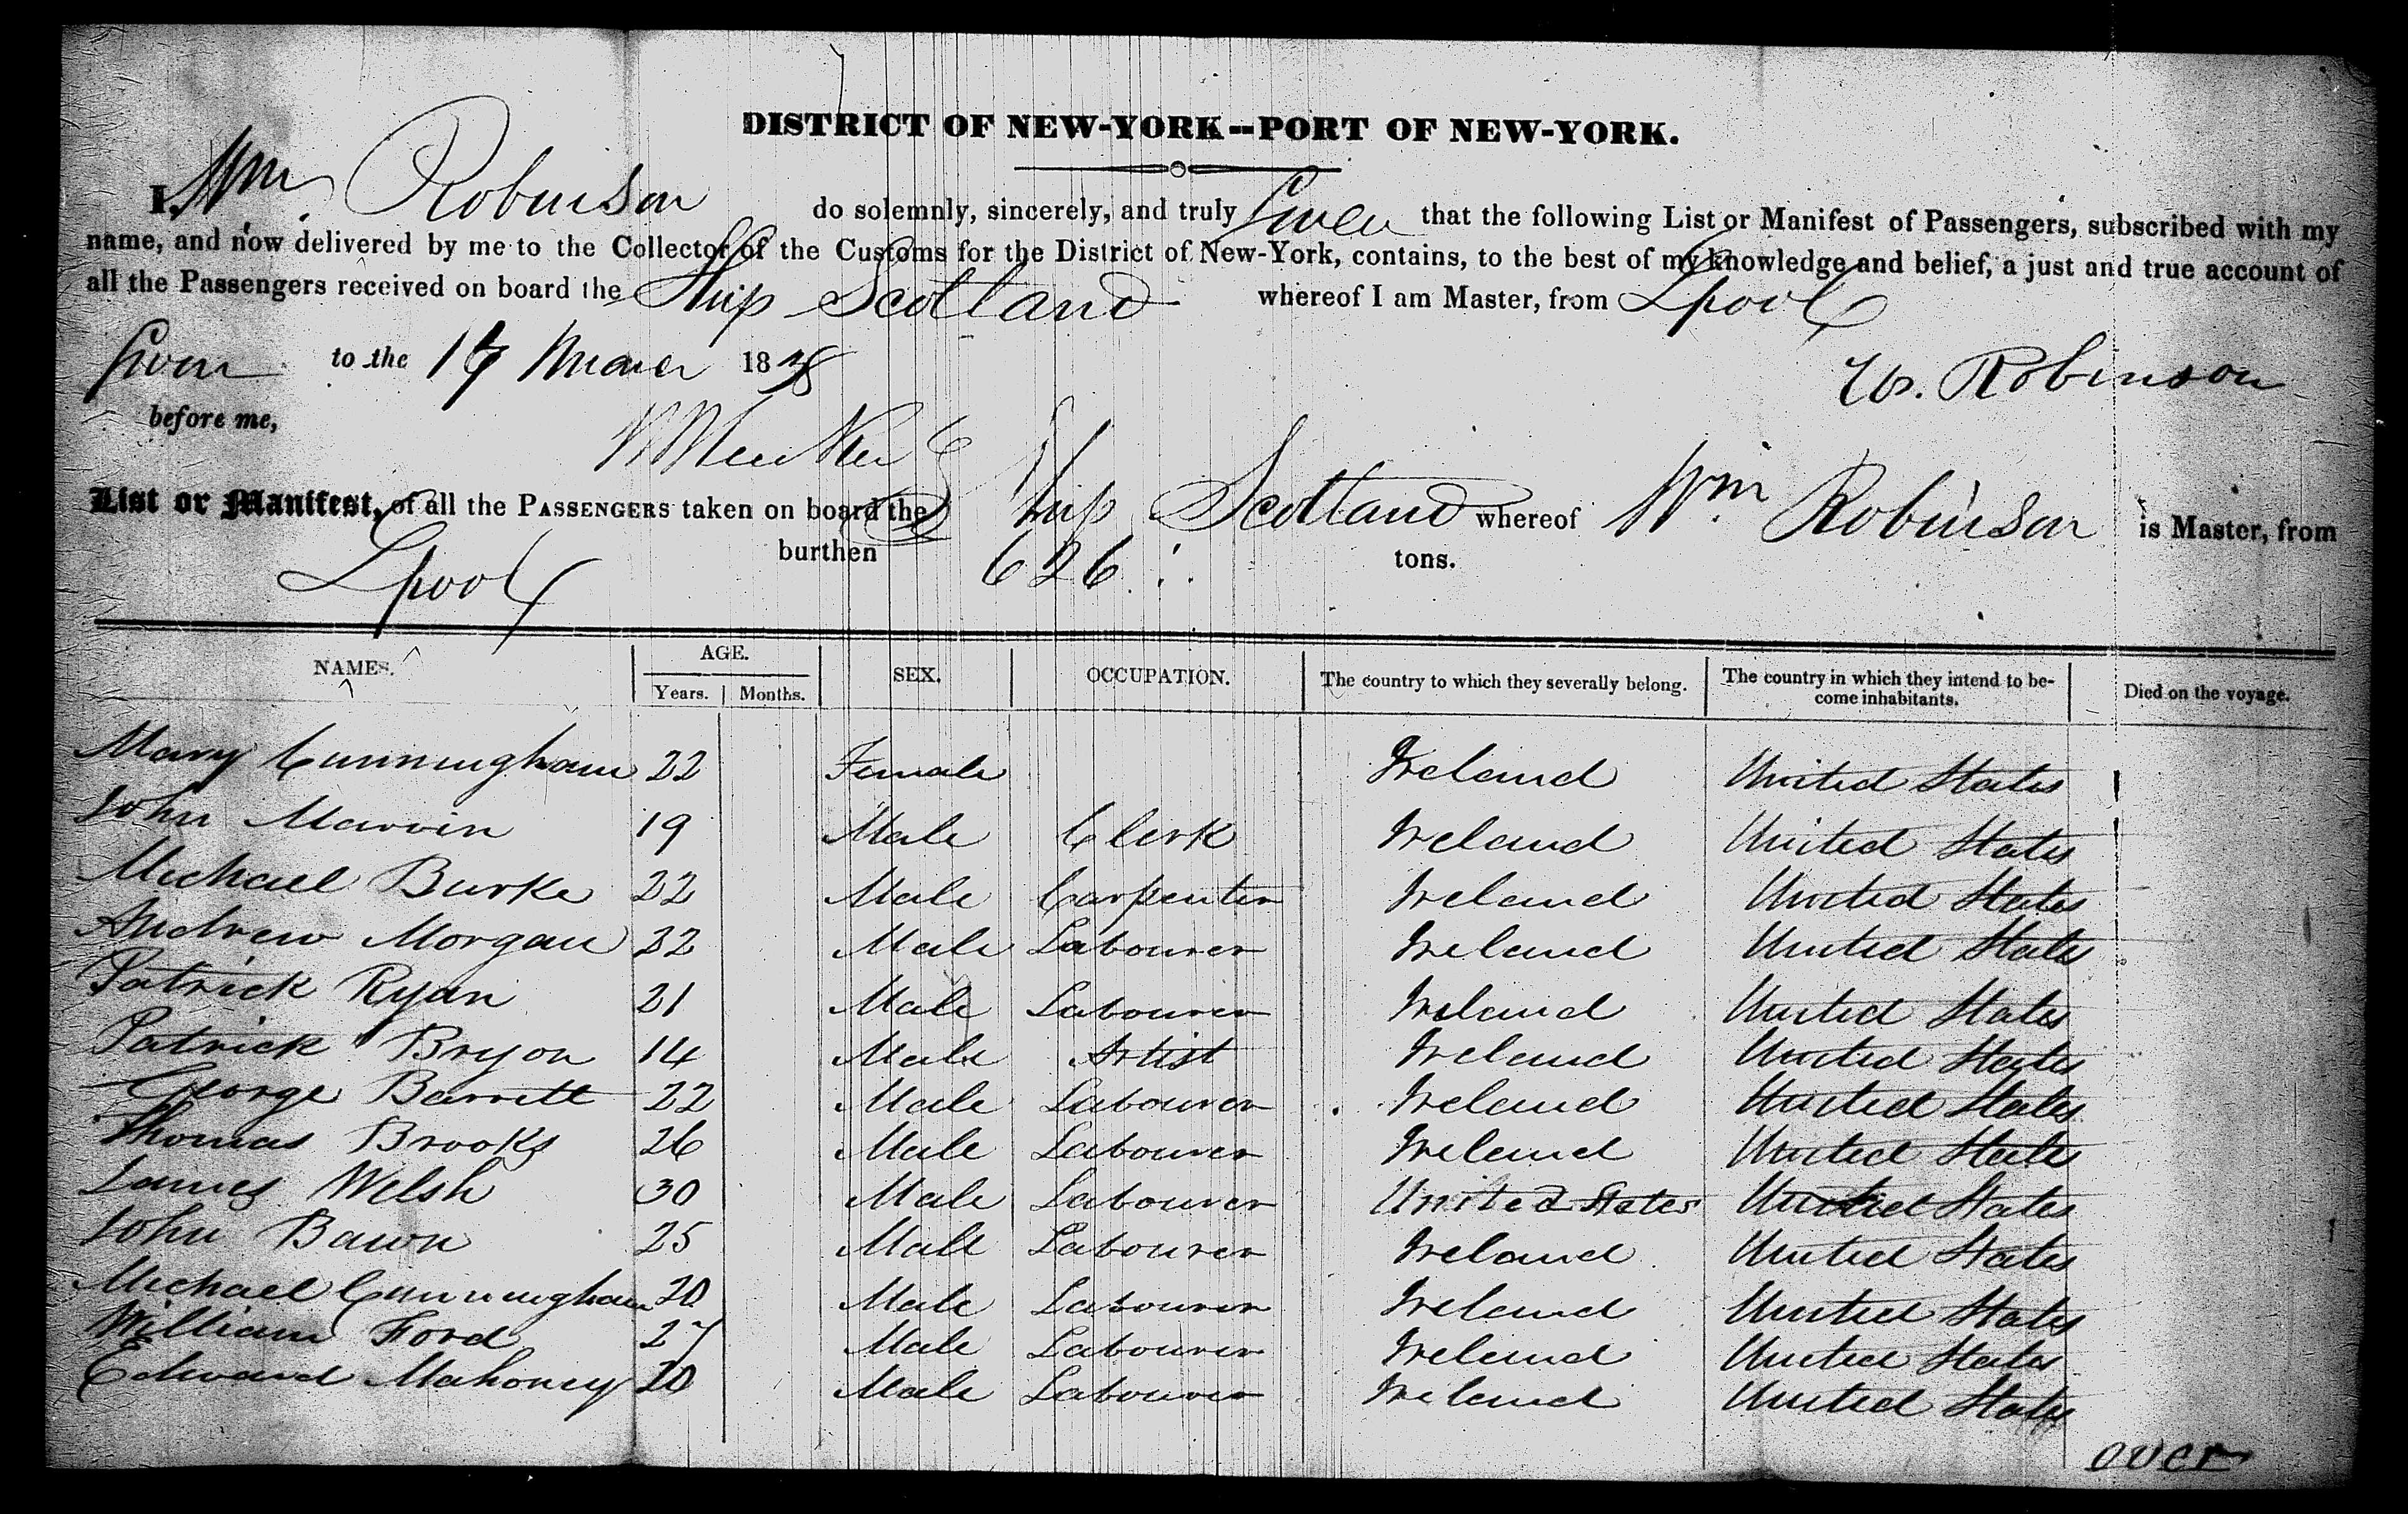 DISTRICT OF NEW-YORK--PORT OF NEW-YORK.
I, Wm Robinson do solemnly, sincerely, and truly Swear that the following List or Manifest of Passengers, subscribed with my
name, and now delivered by me to the Collector of the Customs for the District of New-York, contains, to the best of my knowledge and belief, a just and true account of
all the Passengers received on board the Ship Scotland whereof I am Master, from Lpool
Sworn to the 18
W. Robinson
before me,
List or Manifest, of all the PASSENGERS taken on board the Ship Scotland whereof Wm Robinson is Master, from
Lpool burthen 626 tons.
NAMES. AGE. Years. Months. SEX. OCCUPATION. The country to which they severally belong. The country in which they intend to be-come inhabitants. Died on the voyage.
Mary Cunningham 22 Female Ireland United States
John Marvin 19 Male Clerk Ireland United States
Michael Burke 22 Male Carpenter Ireland United States
Andrew Morgan 22 Male Labourer Ireland United States
Patrick Ryan 21 Male Labourer Ireland United States
Patrick Bryon 14 Male Artist Ireland United States
George Barrett 22 Male Labourer Ireland United States
Thomas Brooks 26 Male Labourer Ireland United States
James Welsh 30 Male Labourer United States United States
John Bawn 25 Male Labourer Ireland United States
Michael Cunningham 20 Male Labourer Ireland United States
William Ford 27 Male Labourer Ireland United States
Edward Mahoney 20 Male Labourer Ireland United States
over